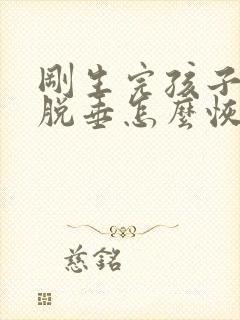 剛生完孩子
脱垂怎麼恢
慈銘